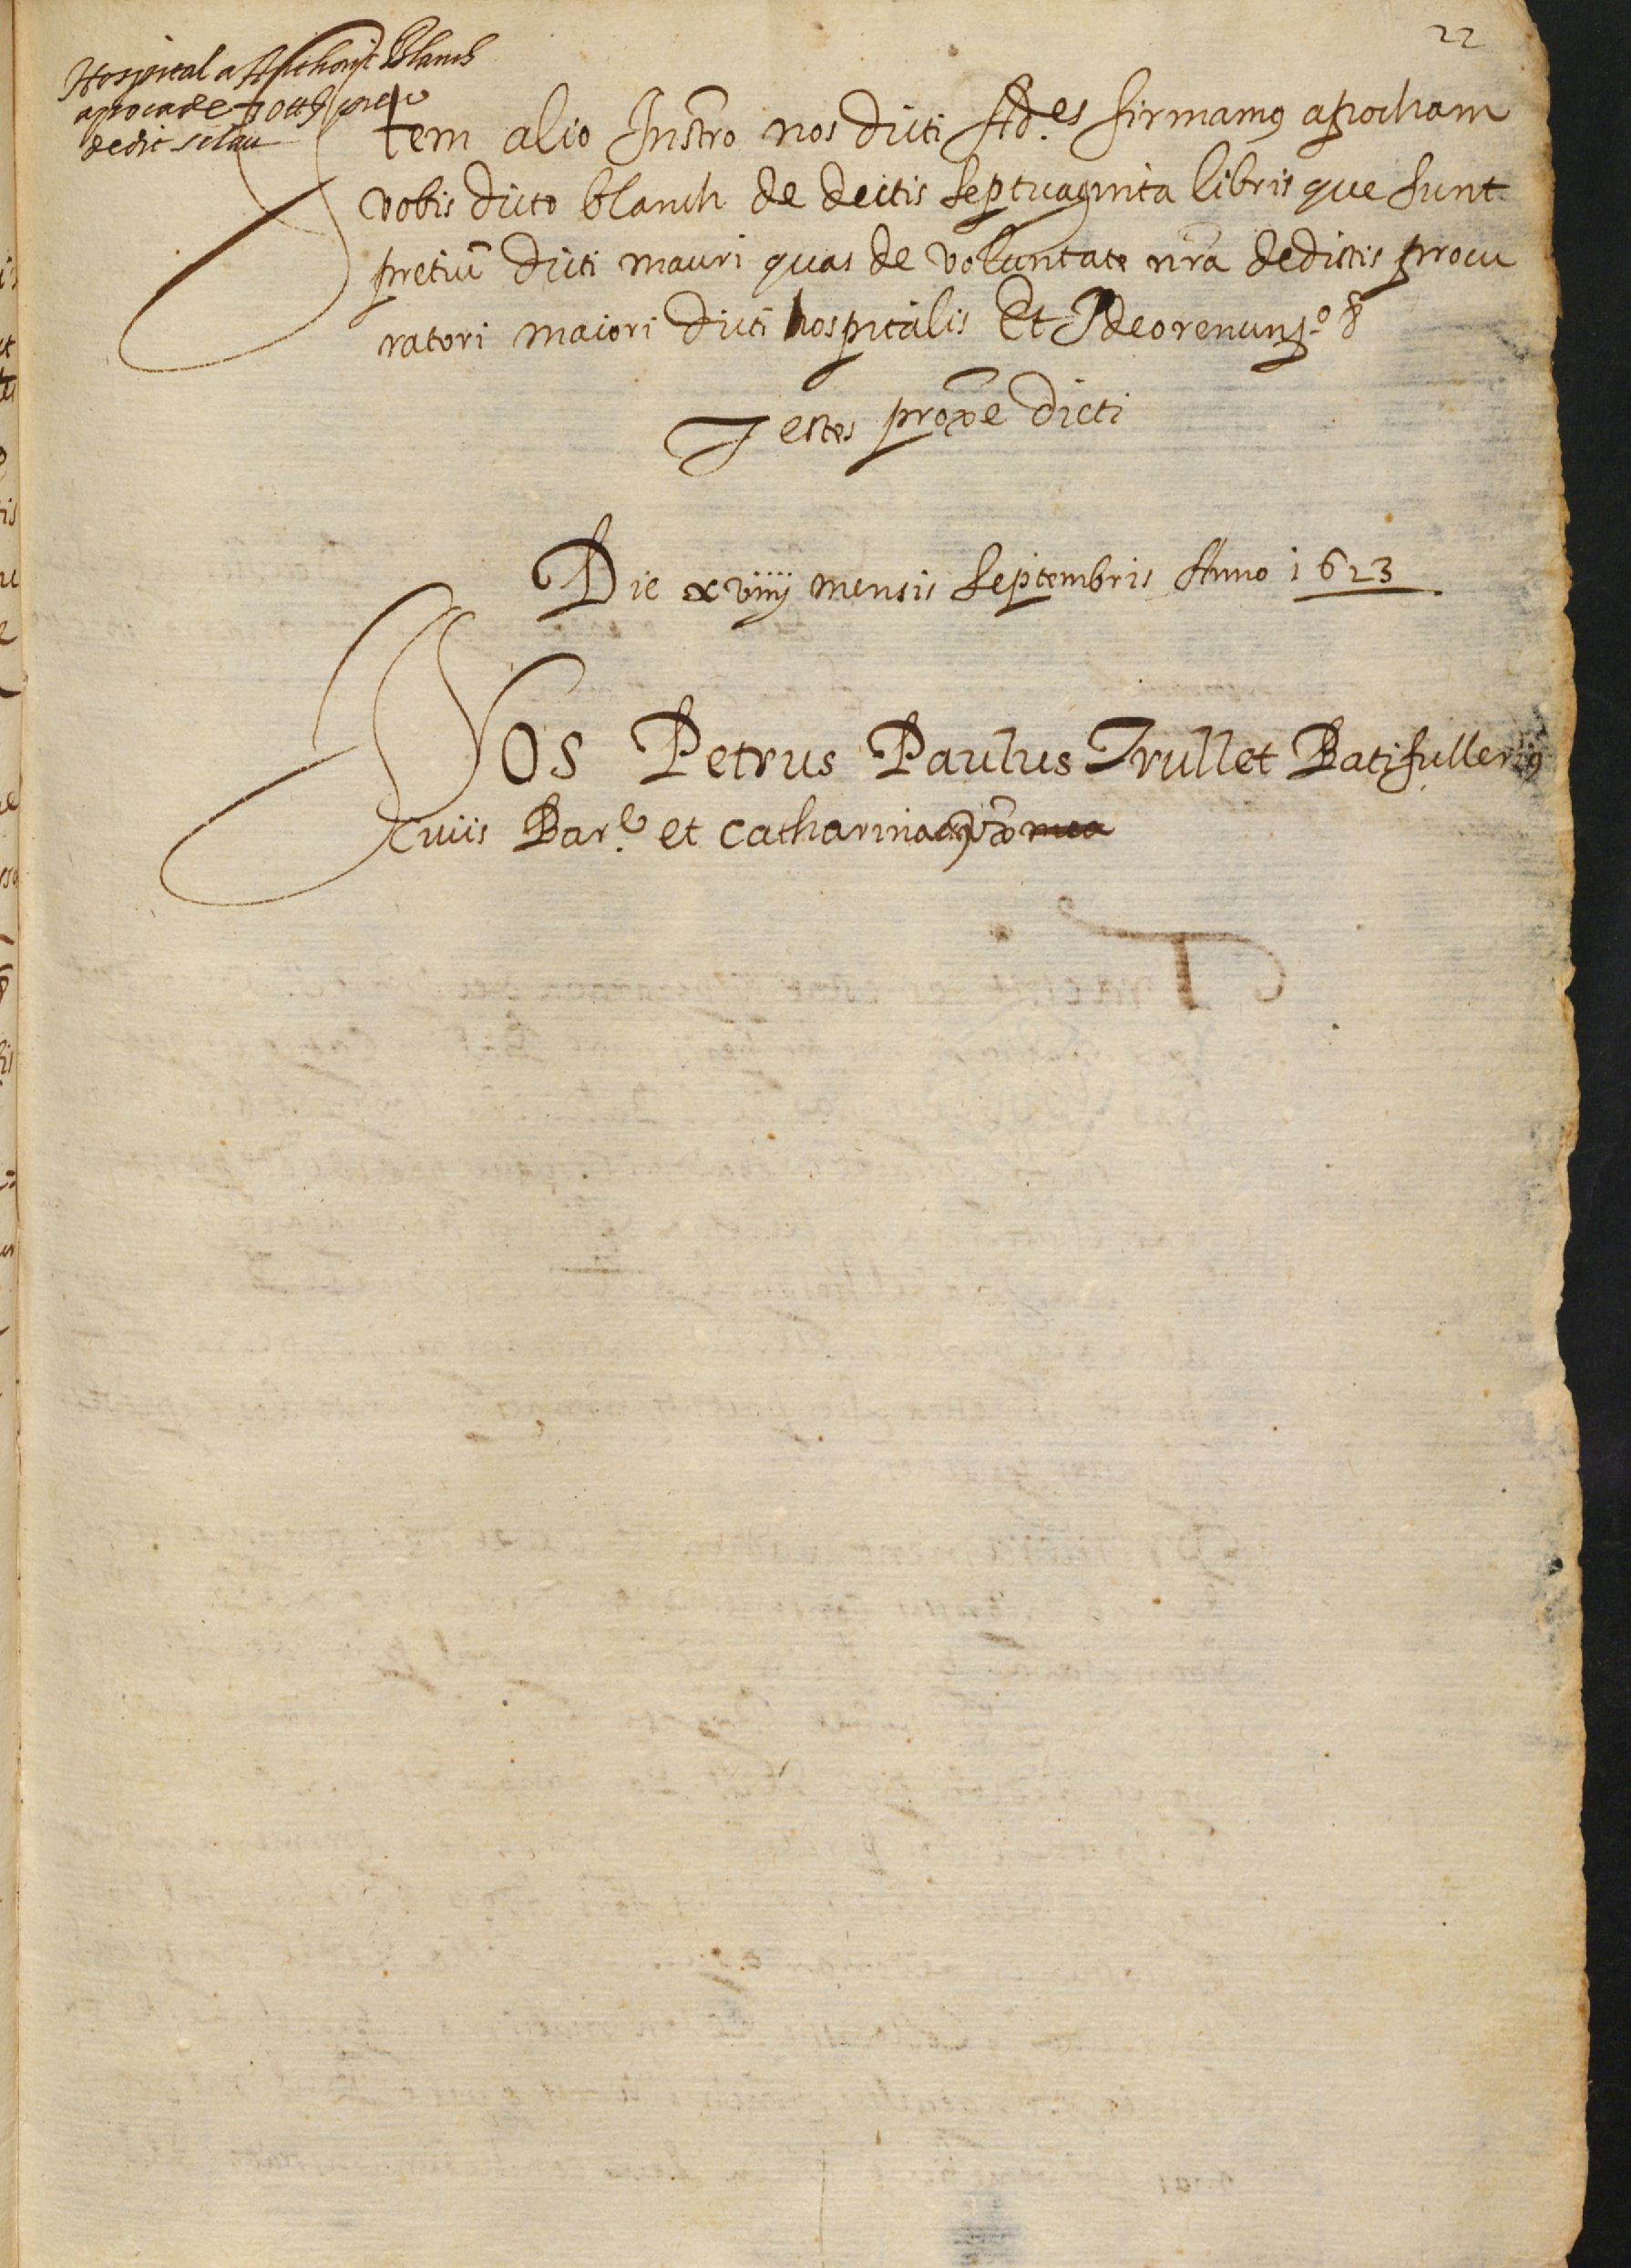 22
Hospital a Anthoni Blanch
apoca de 70 ₶ preu
de dit sclau
Item alio Instro nos dicti Ad.es firmamus apocham
vobis dicto blanch de dictis septuaginta libris que sunt
pretiū dicti mauri quas de voluntate nrā dedistis procu
ratori maiori dicti hospitalis Et Ideo renun.o &
Testes proxe dicti
Die xviiij mensis septembris Anno 1623
Nos Petrus Paulus Trullet Batifullerius
Civis Bar.e et Catharina